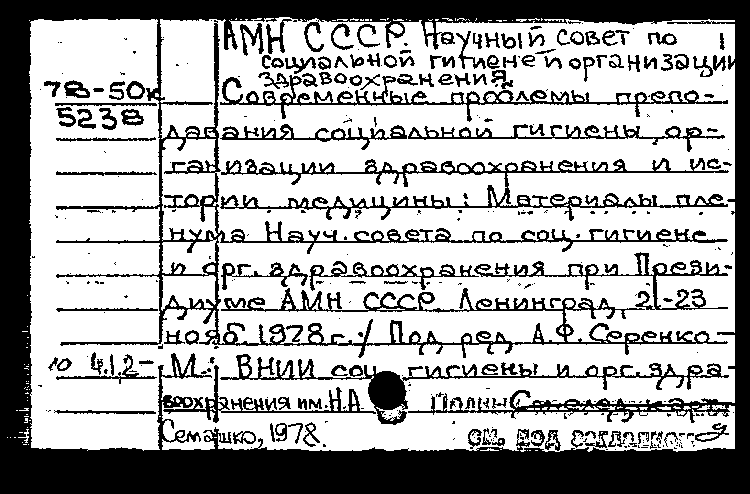 АМН СССР. Научный совет по
социальной гигиене и организации
здравоохранения.
78-50к
5238
Современные проблемы препо-
давания социальной гигиены, ор-
ганизации здравоохранения и ис-
тории медицины: Материалы пле-
нума Науч. совета по соц. гигиене
и орг. здравоохранения при Прези-
диуме АМН СССР. Ленинград, 21-23
нояб. 1978 г. / Под ред. А.Ф. Серенко-
10 4.1.2- М.: ВНИИ соц. гигиены и орг. здра-
воохранения им. Н.А
Семашко, 1978. см. под заглавием